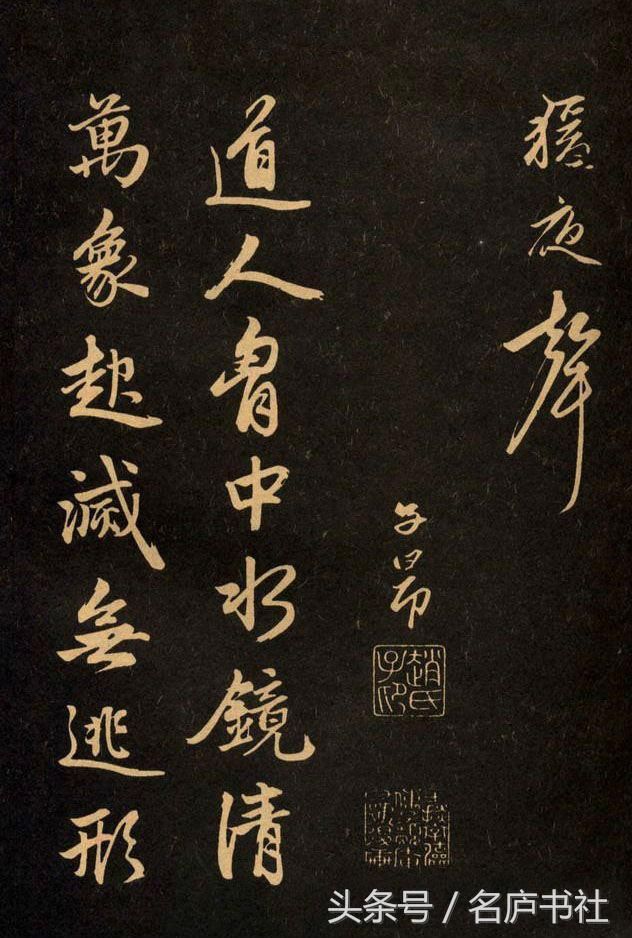 猿夜聲
子昂
趙氏子昂
道人胷中水鏡清
萬象起滅無逃形
头条号 / 名庐书社